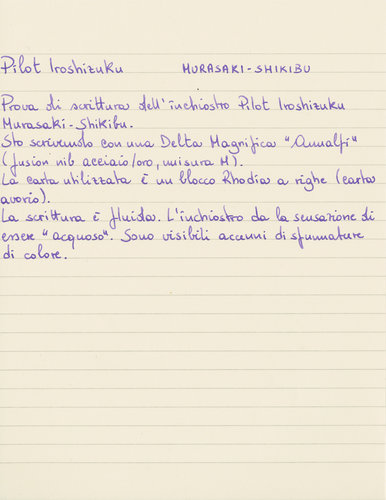 Pilot Iroshizuku MURASAKI-SHIKIBU
Prova di scrittura dell'inchiostro Pilot Iroshizuku
Murasaki-Shikibu.
Sto scrivendo con una Delta Magnifica "Amalfi"
(fusion nib acciaio/oro, misura M).
La carta utilizzata è un blocco Rhodia a righe (carta
avorio).
La scrittura è fluida. L'inchiostro da la sensazione di
essere "acquoso". Sono visibili accenni di sfumature
di colore.